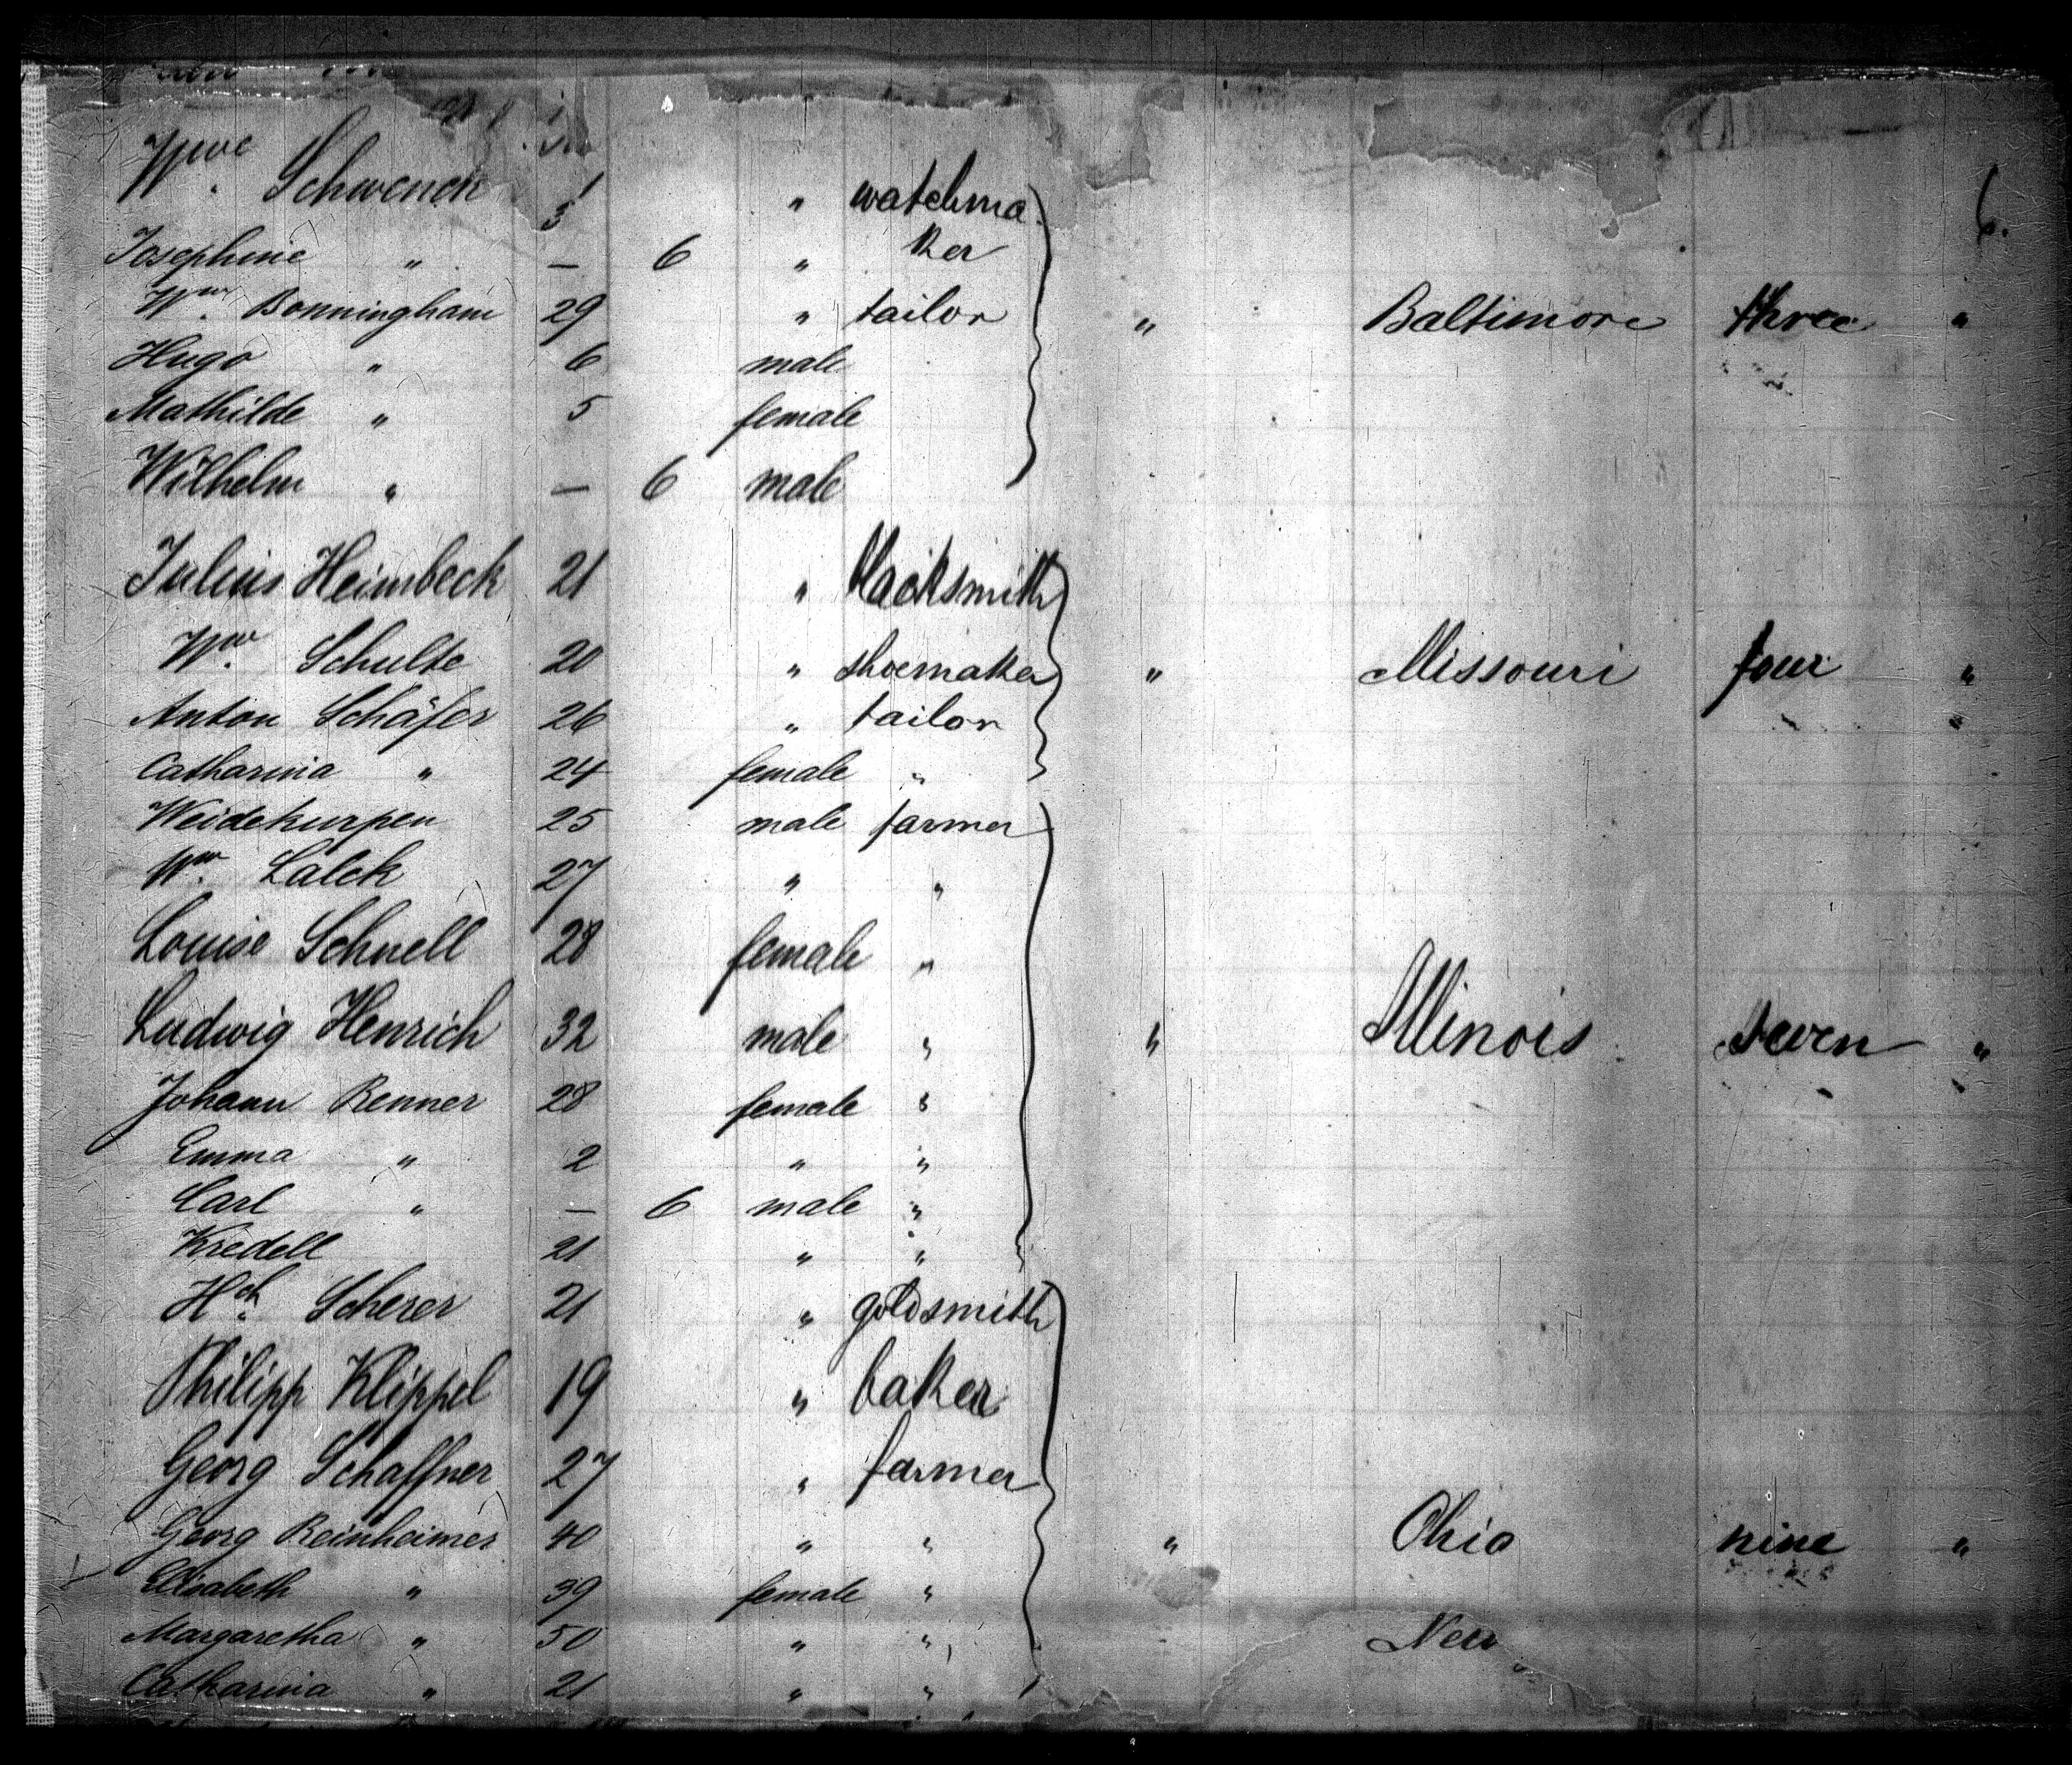 6.
Wwe. Schwenck 31 " watchma
Josephine " — 6 " ker
Ww. Bonningham 29 " tailor " Baltimore three "
Hugo " 6 male
Mathilde " 5 female
Wilhelm " — 6 male
Julius Heimbeck 21 " blacksmith
Ww. Schulte 20 " shoemaker " Missouri four "
Anton Schäfer 26 " tailor
Catharina " 24 female "
Weidekurpen 25 male farmer
Ww. Lalck 27 " "
Louise Schnell 28 female "
Ludwig Henrich 32 male " " Illinois seven "
Johann Renner 28 female "
Emma " 2 " "
Carl " — 6 male "
Kredell 21 " "
Hch. Scherer 21 " goldsmith
Philipp Klippel 19 " baker
Georg Schaffner 27 " farmer
Georg Reinheimer 40 " " " Ohio nine "
Elisabeth " 39 female "
Margaretha " 50 " " New
Catharina " 21 " "